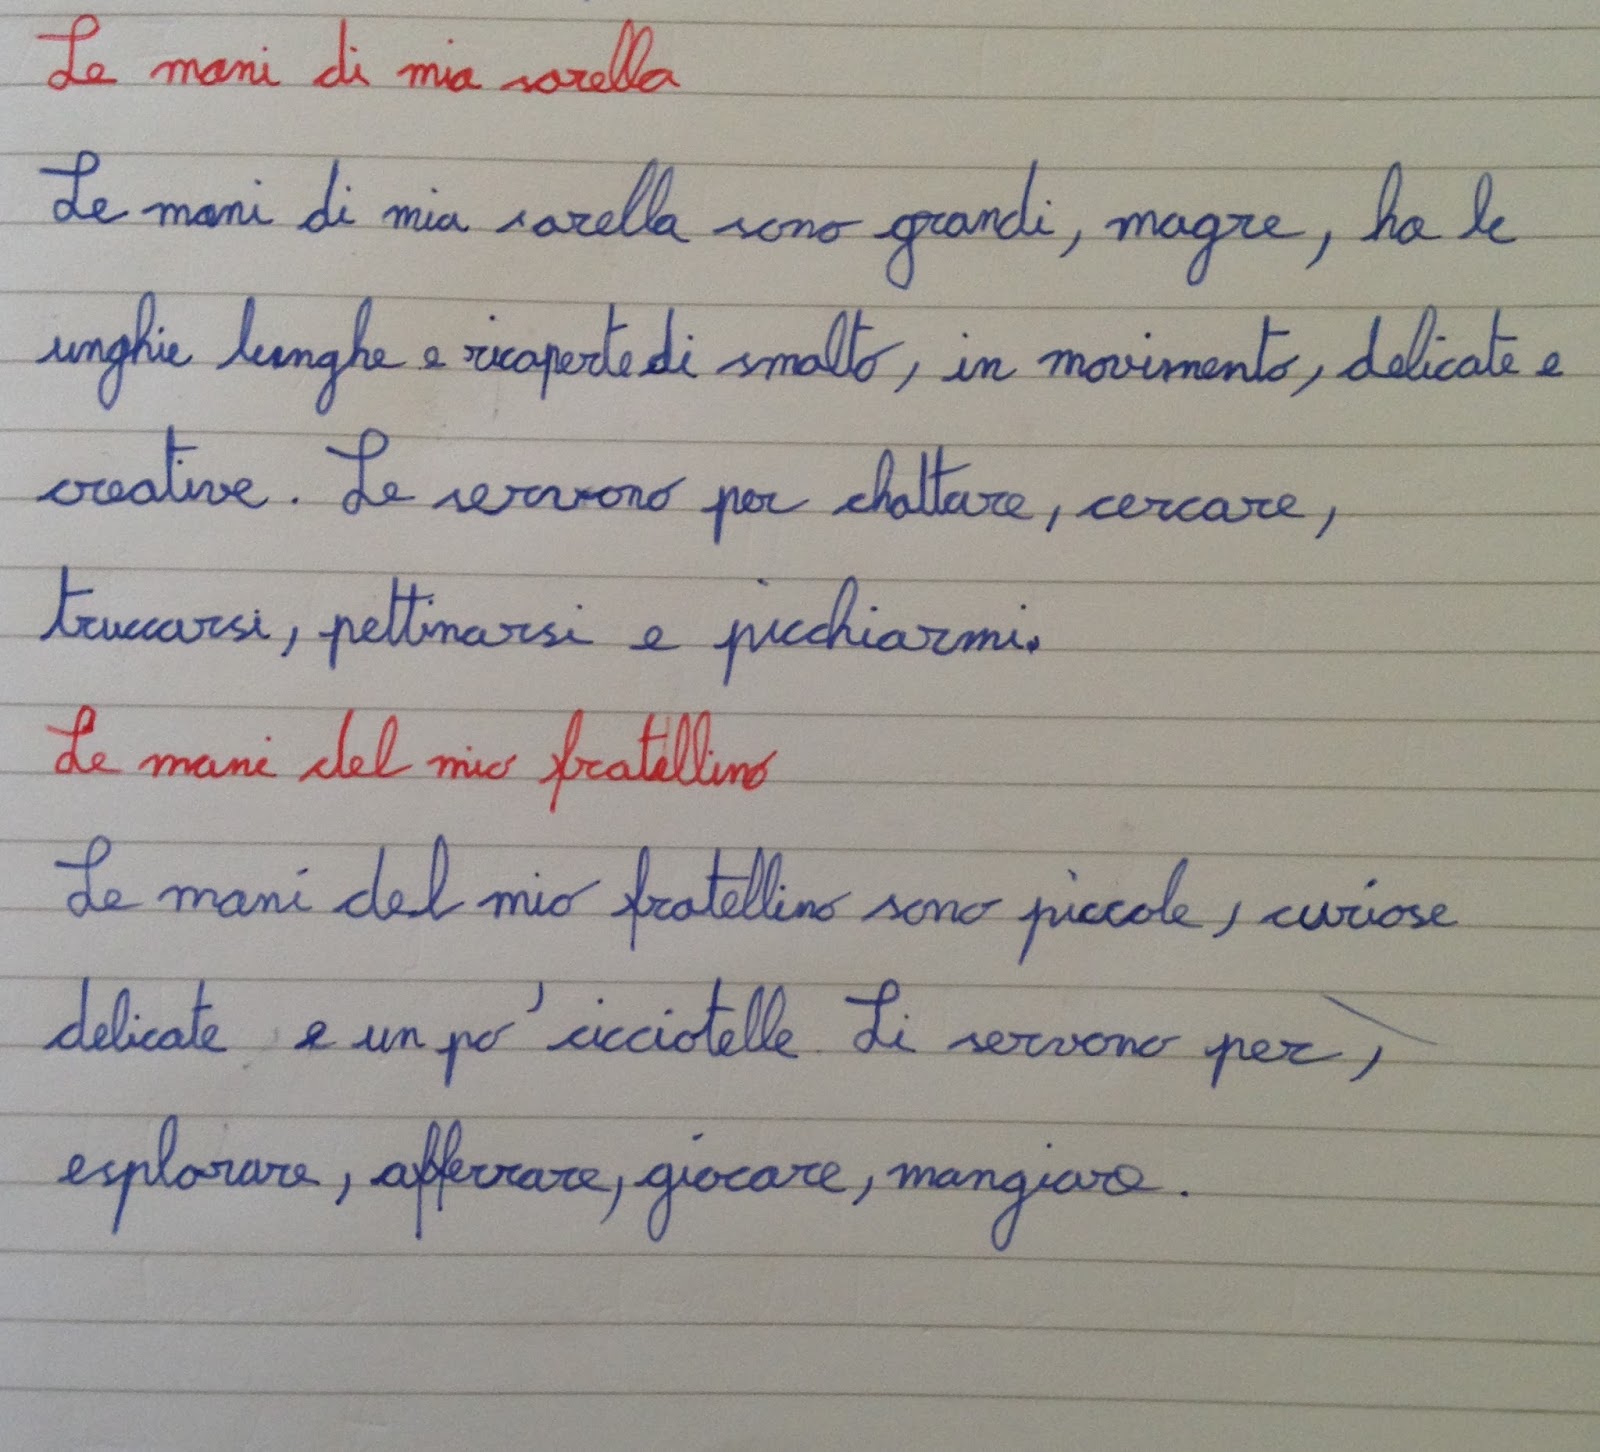 Le mani di mia sorella
Le mani di mia sorella sono grandi, magre, ha le
unghie lunghe e ricoperte di smalto, in movimento, delicate e
creative. Le servono per chattare, cercare,
truccarsi, pettinarsi e picchiarmi.
Le mani del mio fratellino
Le mani del mio fratellino sono piccole, curiose
delicate e un po' cicciotelle Li servono per,
esplorare, afferrare, giocare, mangiare.